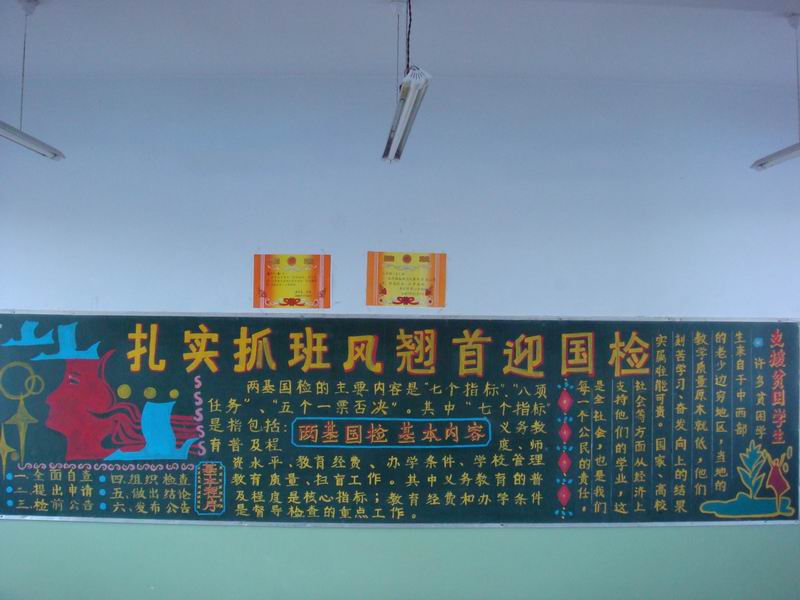 扎实抓班风翘首迎国检
两基国检的主要内容是“七个指标”、“八项
任务”、“五个一票否决”。其中“七个指标”
是指包括: 义务教
育普及程 度、师
资水平、教育经费、办学条件、学校管理
教育质量、扫盲工作。其中义务教育的普
及程度是核心指标；教育经费和办学条件
是督导检查的重点工作。
两基国检基本内容
基本程序
一.全面自查
二.提出申请
三.检前公告
四.组织检查
五.做出结论
六.发布公告
支援贫困学生
许多贫困学
生来自于中西部
的老少边穷地区，当地的
教学质量原本就低，他们
刻苦学习、奋发向上的结果
实属难能可贵。国家、高校
社会等方面从经济上
支持他们的学业，这
是全社会，也是我们
每一个公民的责任。